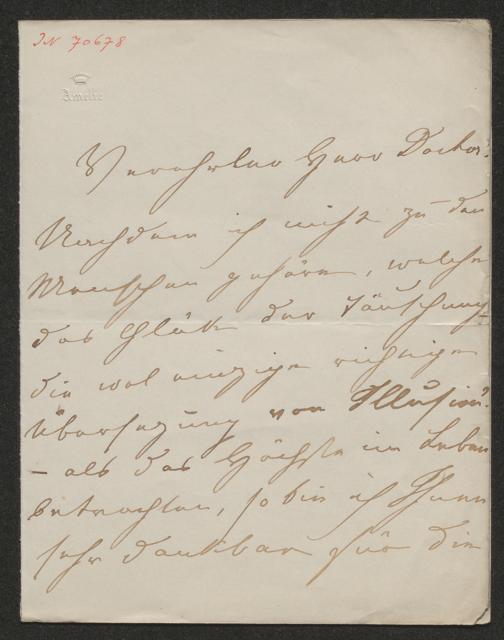 IN 70678
Amelie
Verehrter Herr Doctor!
Nachdem ich nicht zu den
Menschen gehöre, welche
das Glük der Täuschung –
die wol einzige richtige
Übersezung von Illusion!
– als das Höchste im Leben
betrachten, so bin ich Ihnen
sehr dankbar für die